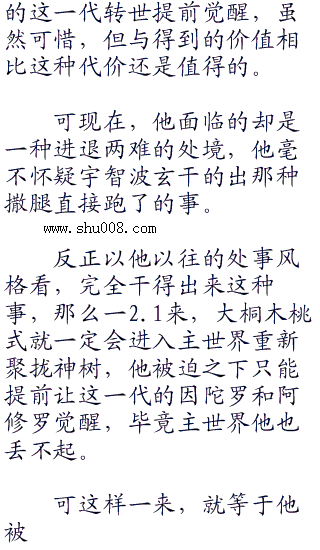 的这一代转世提前觉醒，虽
然可惜，但与得到的价值相
比这种代价还是值得的。
可现在，他面临的却是
一种进退两难的处境，他毫
不怀疑宇智波玄干的出那种
撒腿直接跑了的事。
www.shu008.com
反正以他以往的处事风
格看，完全干得出来这种
事，那么一2.1来，大桐木桃
式就一定会进入主世界重新
聚拢神树，他被迫之下只能
提前让这一代的因陀罗和阿
修罗觉醒，毕竟主世界他也
丢不起。
可这样一来，就等于他
被